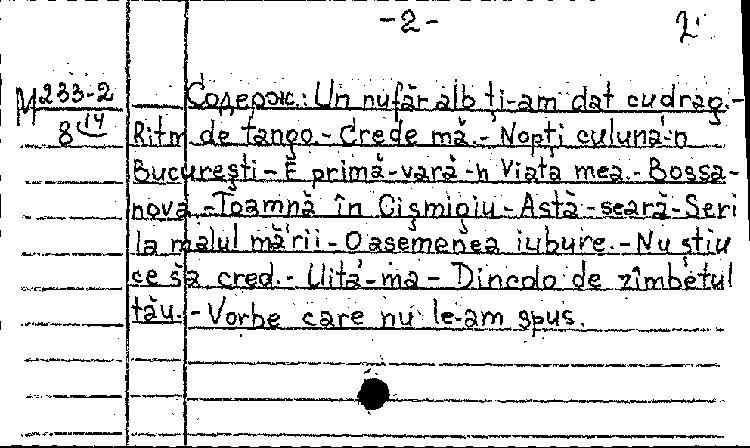 -2- 2
М 233-2 Содерж.: Un nufăr alb ţi-am dat cu drag.-
8 14 Ritm de tango.- Crede mă.- Nopţi culună-n
Bucureşti - E primă-vară-n Viaţa mea.- Bossa-
nova -Toamnă în Cişmigiu - Astă-seară - Seri
la malul mării - O asemenea iubure.- Nu ştiu
ce să cred.- Uită-mă - Dincolo de zîmbetul
tău.- Vorbe care nu le-am spus.